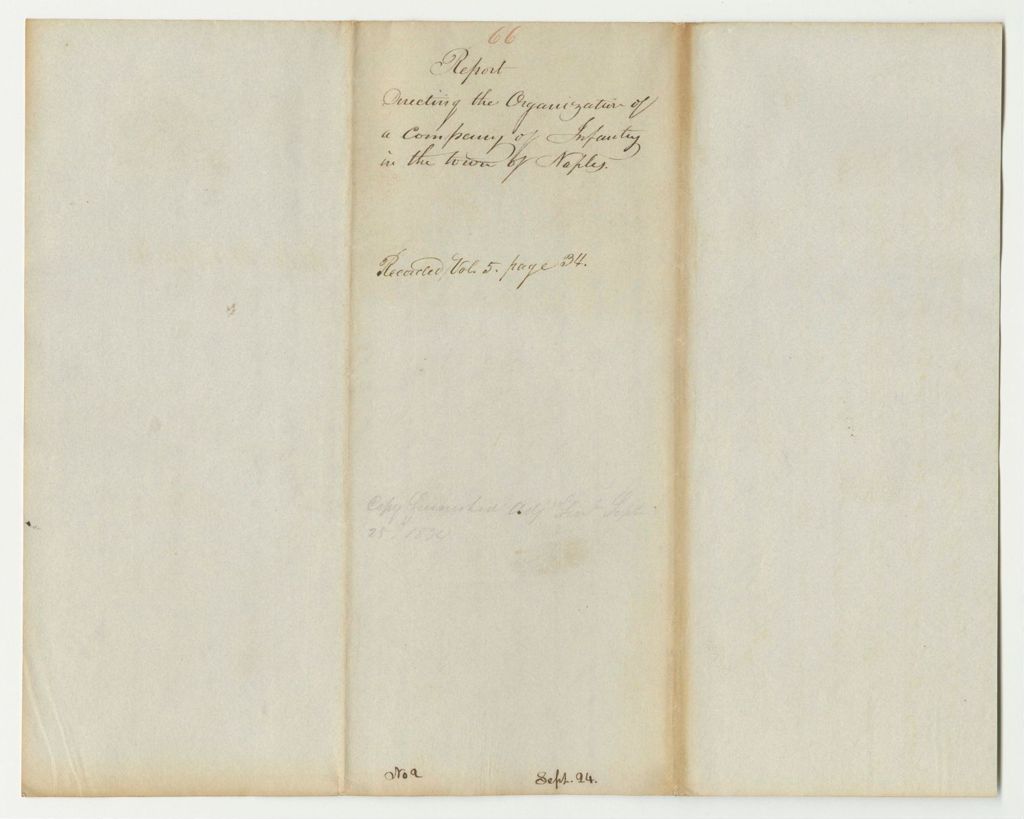 66
Report
Directing the Organization of
a Company of Infantry
in the town of Naples.
Recorded, Vol. 5. page 34.
Copy furnished Adjt Genl Sept
25th
No 2
Sept. 24.